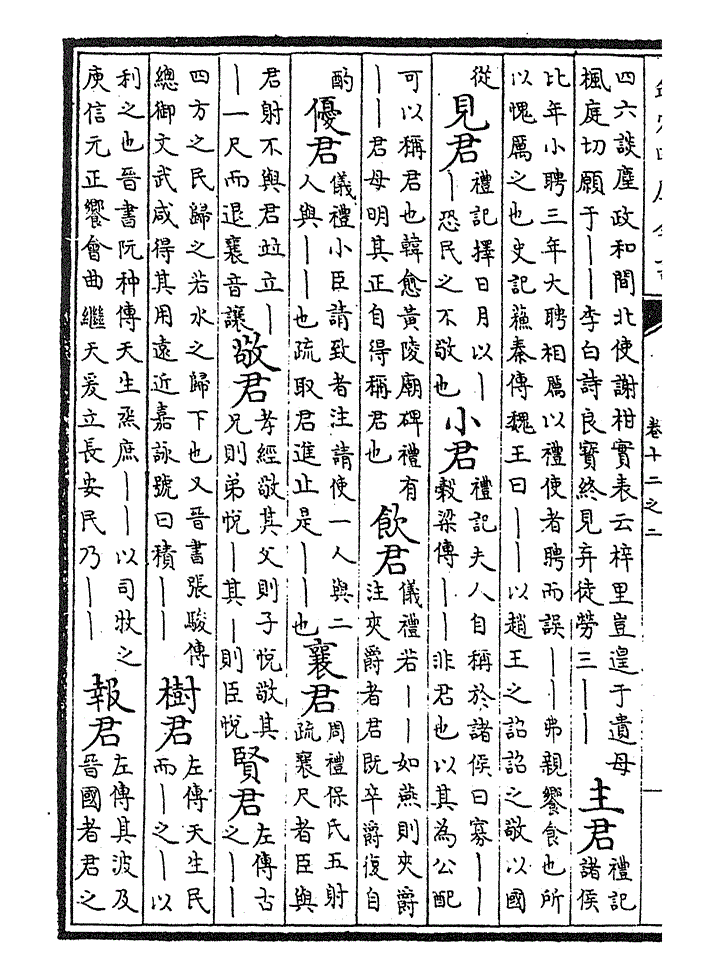 卷十二之二
四六談麈政和間北使謝柑實表云梓里豈遑于遺母
楓庭切願于｜｜李白詩良寶終見弃徒勞三｜｜
主君
禮記
諸侯
比年小聘三年大聘相厲以禮使者聘而誤｜｜弗親饗食也所
以愧厲之也史記蘇秦傳魏王曰｜｜以趙王之詔詔之敬以國
從
見君
禮記擇日月以｜
｜恐民之不敬也
小君
禮記夫人自稱於諸侯曰寡｜｜
穀梁傳｜｜非君也以其為公配
可以稱君也韓愈黃陵廟碑禮有
｜｜君母明其正自得稱君也
飲君
儀禮若｜｜如燕則夾爵
注夾爵者君既卒爵復自
酌
優君
儀禮小臣請致者注請使一人與二
人與｜｜也疏取君進止是｜｜也
襄君
周禮保氏五射
疏襄尺者臣與
君射不與君竝立｜
｜一尺而退襄音讓
敬君
孝經敬其父則子悅敬其
兄則弟悅｜其｜則臣悅
賢君
左傳古
之｜｜
四方之民歸之若水之歸下也又晉書張駿傳
總御文武咸得其用遠近嘉詠號曰積｜｜
樹君
左傳天生民
而｜之｜以
利之也晉書阮种傳天生烝庶｜｜以司牧之
庾信元正饗會曲繼天爰立長安民乃｜｜
報君
左傳其波及
晉國者君之